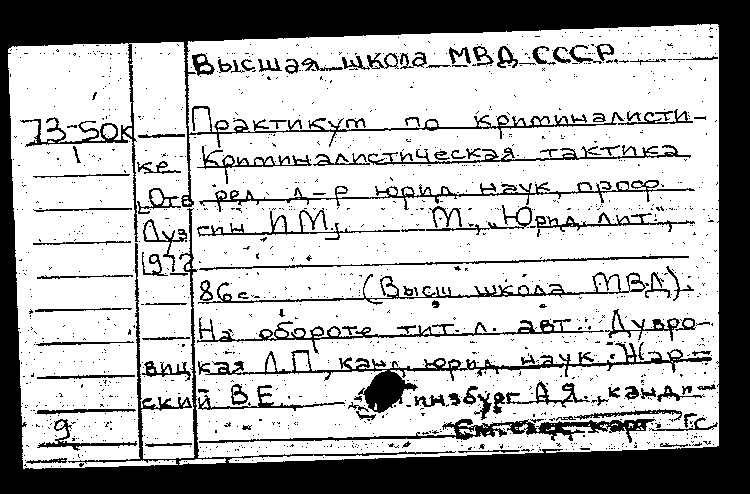 Высшая школа МВД СССР
73-50к Практикум по криминалисти-
1 ке Криминалистическая тактика
[Отв ред д-р юрид наук, проф.
Лузгин И М], М, "Юрид лит",
1972
86 с. (Высш школа МВД).
На обороте тит. л. авт.: Дубро-
вицкая Л.П, канд юрид наук; Жар-
ский В Е, А Я, канд
9 См. след карт.